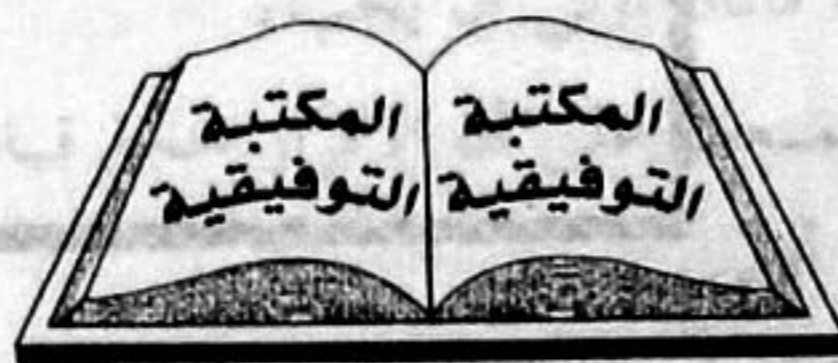 المكتبة
التوفيقية
المكتبة
التوفيقية